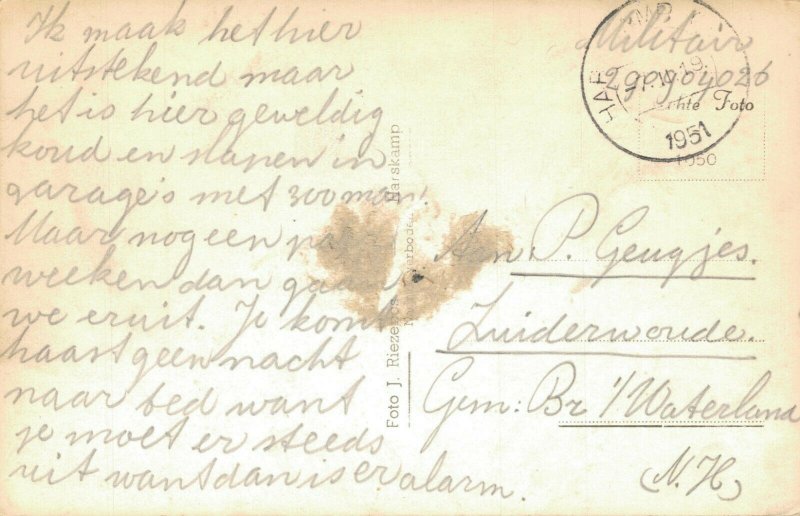 Ik maak het hier
uitstekend maar
het is hier geweldig
koud en slapen in
garage's met 300 man!
Maar nog een paar
weeken dan gaan
we eruit. Je komt
haast geen nacht
naar bed want
je moet er steeds
uit want dan is er alarm.
Foto J. Riezebos
Harskamp
Militair
290404026
1951
Echte Foto
1950
Aan P. Geugjes.
Zuiderwoude.
Gem: Br i/Waterland
(N.H.)